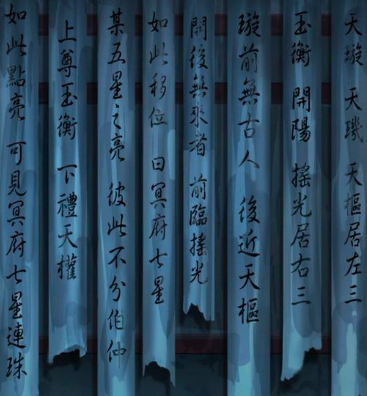 天璇 天璣 天樞居左三
玉衡 開陽 搖光居右三
璇前無古人 後近天樞
開後無來者 前臨搖光
如此移位 曰冥府七星
某五星之亮 彼此不分伯仲
上尊玉衡 下禮天權
如此點亮 可見冥府七星連珠